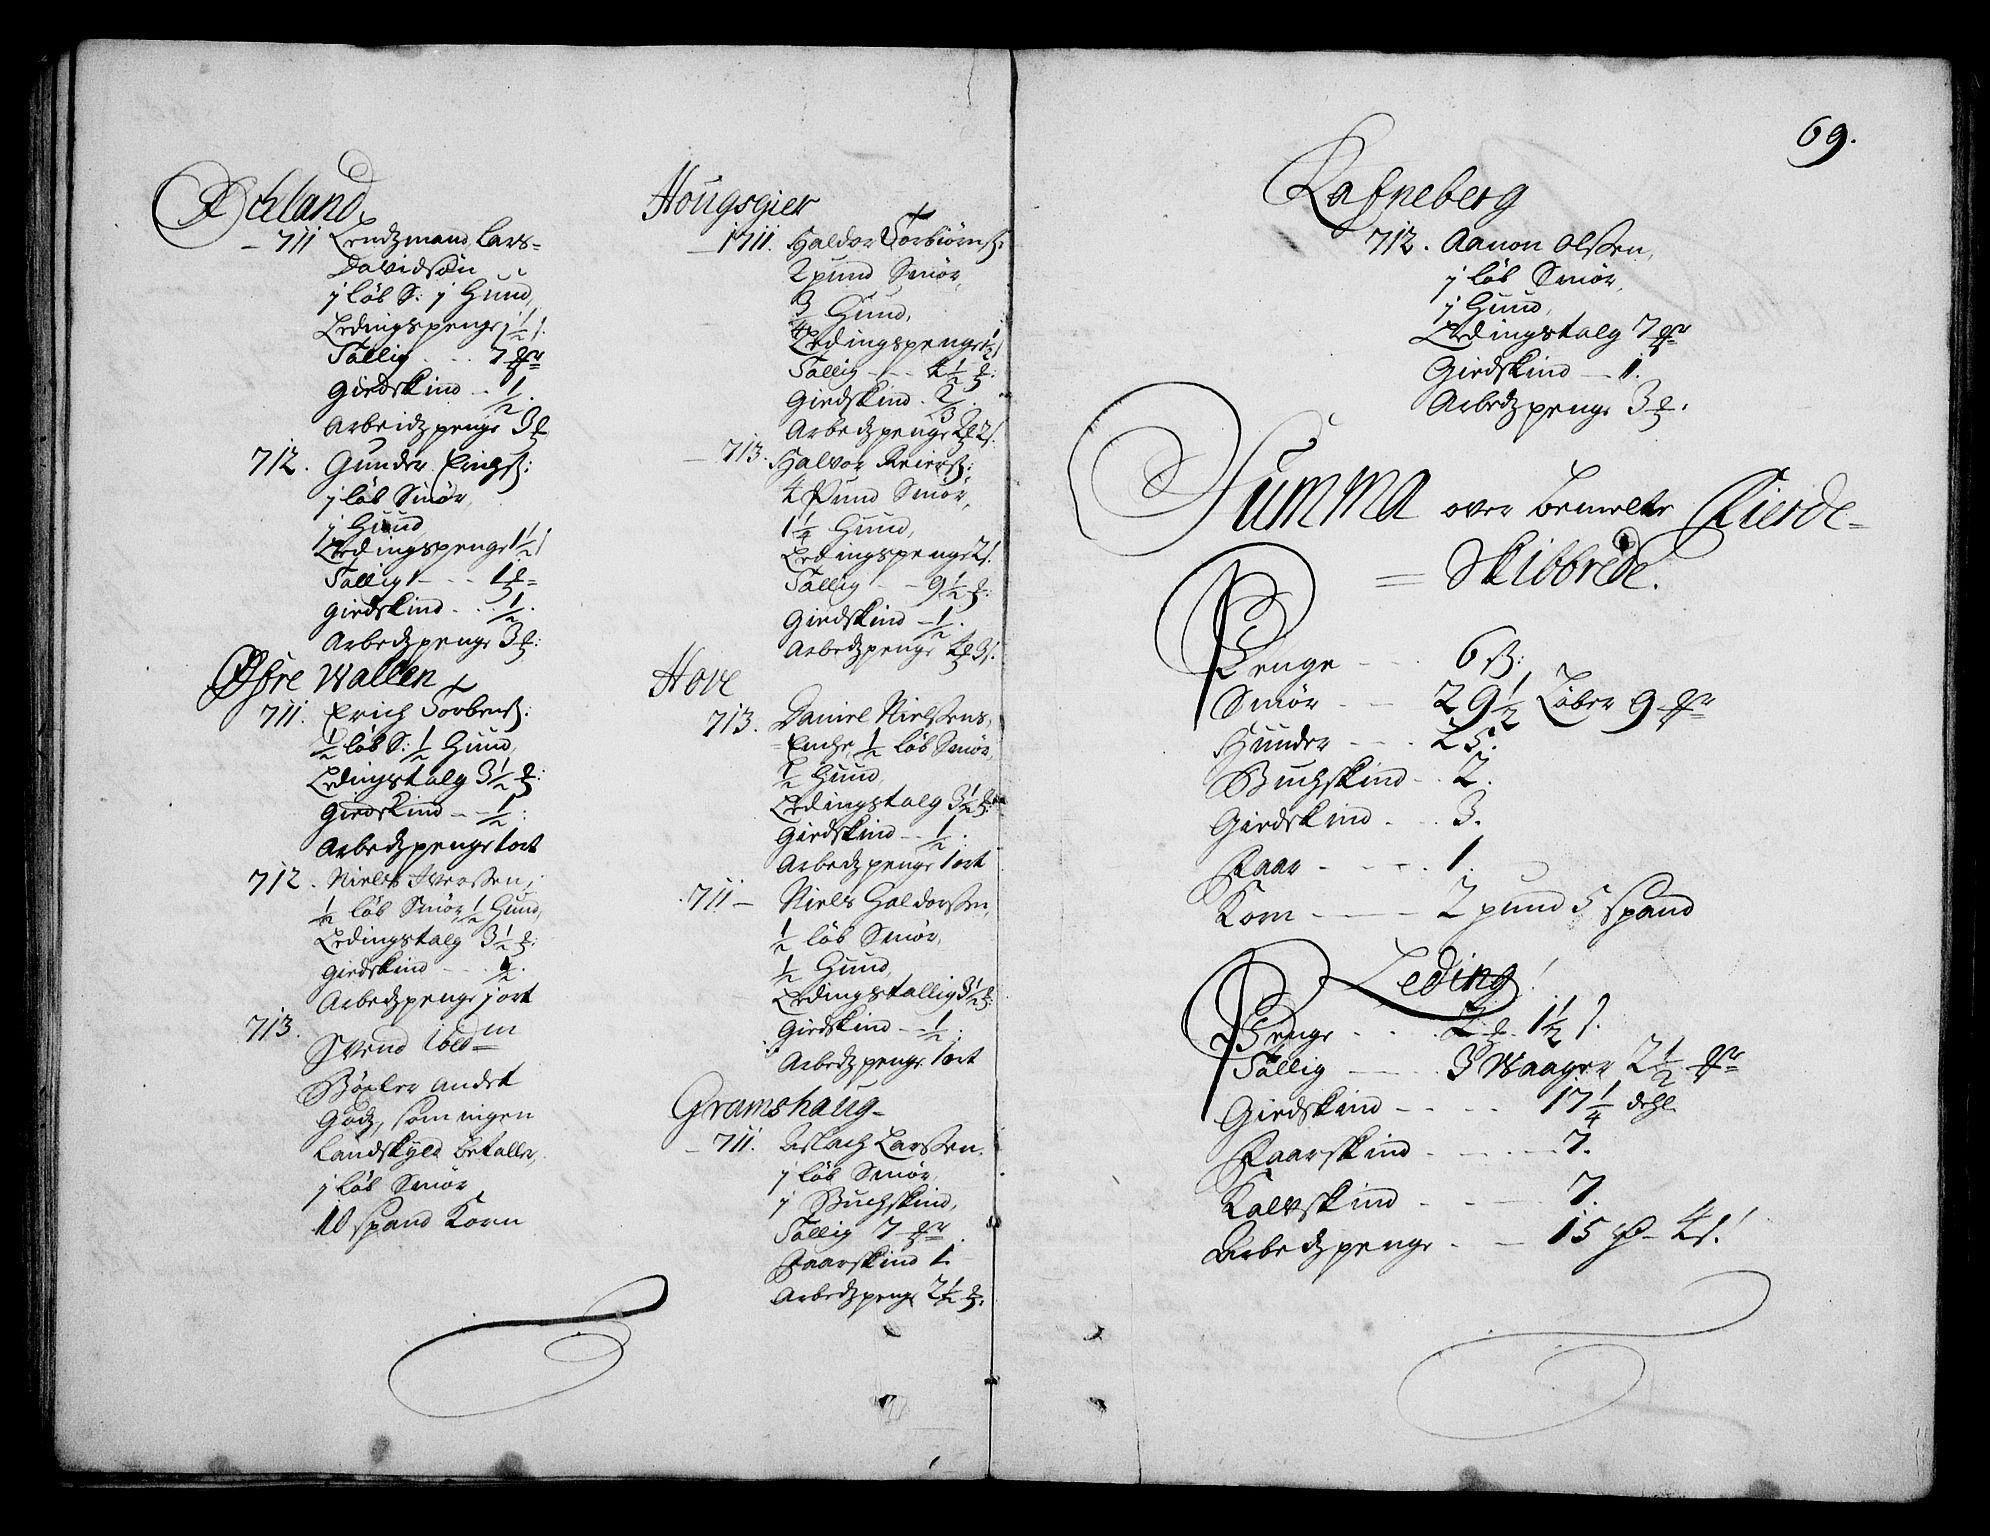 Achland,
711 Lendzmand Lars-
Davidsøn
j løb S: j Hund,
Ledingspenge j 1/2 s.
Tallig - - - 7 mr
Giedskind - - 1/2.
Arbeidzpenge 3 mr
712. Gunder Erichs:
j løb Smør,
j Hund
Ledingspenge 1 1/2 s
Tallig - - - 1 mr
Giedskind - - 1/2.
Arbedzpenge 3 mr:
Øfre Wallen
711. Erich Torbens:
1/2 løb S: 1/2 Hund,
Ledingstalg 3 1/2 mr:
Giedskind - - 1/2:
Arbedzpenge 1 ort
712. Niels Iverssen,
1/2 løb Smør 1/2 Hund,
Ledingstalg 3 1/2 mr:
Giedskind - - - 1/2.
Arbedzpenge j ort
713.
Svend ibdm
Böxler andet
Godz, som ingen
Landskyld betaller,
j løb Smør
10 spand Korn
Hougsgier
1711. Haldor Torbiørns:
2 pund Smør,
3/4 Hund,
Ledingspenge 1 1/2 s
Tallig - - - 4 1/2 mr:
Giedskind - 2/3.
Arbedzpenge 2 mr 2 s.
713. Halvor Reiers:
4 Pund Smør,
1 1/4 Hund,
Ledingspenge 2 s.
Tallig - - 9 1/2 mr:
Giedskind - 1/2.
Arbedzpenge 4 mr 3 s.
Hove
713. Daniel Nielssens,
Enche, 1/2 løb Smør,
1/2 Hund,
Ledingstalg 3 1/2 mr:
Giedskind - - 1/2.
Arbedzpenge 1 ort
711 - Niels Haldorssen,
1/2 løb Smør,
1/2 Hund,
Ledingstallig 3 1/2 mr:
Giedskind - - 1/2.
Arbedzpenge 1 ort
Gramshaug-
711. Aslach Larssen.
j løb Smør,
j Buchskind,
Tallig 7 mr
Faarskind 1.
Arbedzpenge 2 1/2 mr.
69.
Rafneberg
712. Aanon Olssen,
j løb Smør,
j Hund,
Ledingstalg 7 mr
Giedskind - 1.
Arbedzpenge 3 mr.
Summa over bemelte Fierde-
= Skibbrede.
Penge - - - 6 ß:
Smør - - 29 1/2 Løber 9 mr
Hunder - - - 25.
Buchskind - - 2.
Giedskind - - - 3.
Faar - - - - 1.
Korn - - - 2 pund 5 spand
Leding
Penge - - - 2 mr 1 1/2 s.
Tallig - - - 3 Waager 2 1/2 mr
Giedskind - - - - 17 1/4 dehl
Faarskind - - - - 7.
Kalvskind - - - 7.
Arbedzpenge - - 15 rd 4 s.